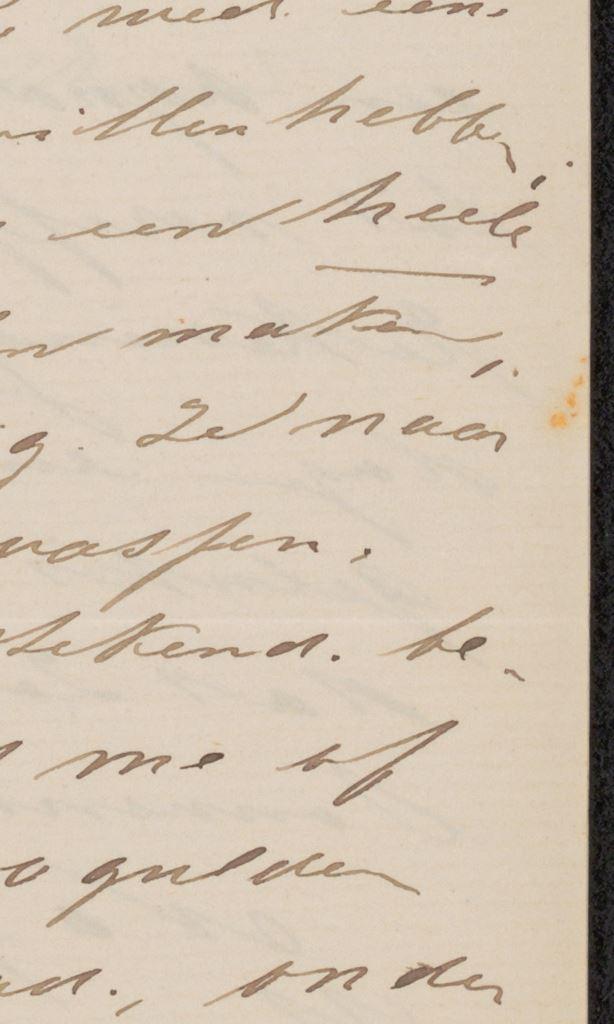 med een
willen hebben,
een heele
maken,
Ze naar
wassen.
stekend. be-
me of
gulden
onder